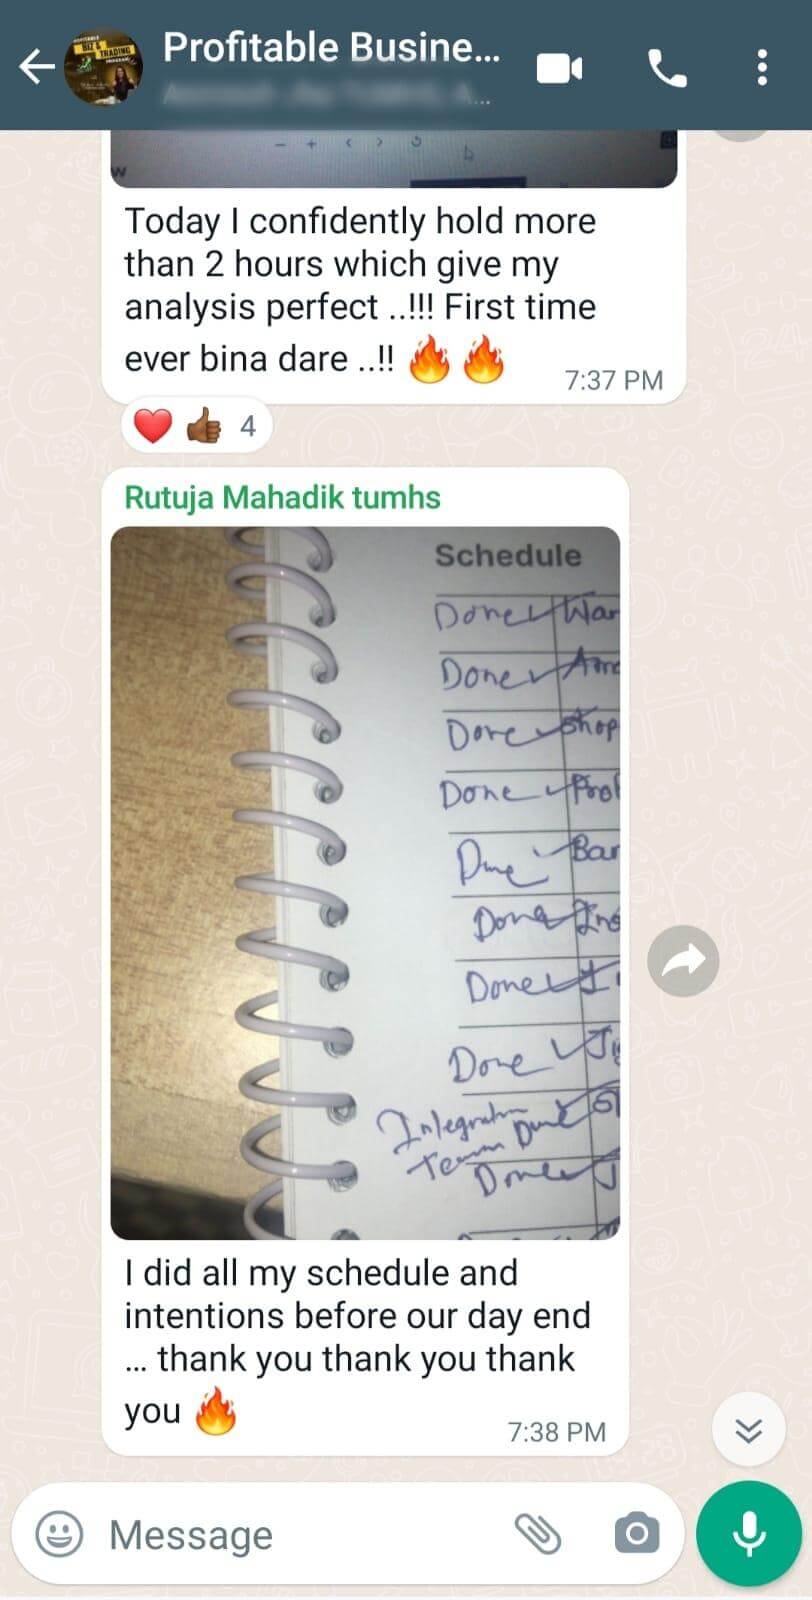 Profitable Busine...
BIZ &
TRADING
Today I confidently hold more
than 2 hours which give my
analysis perfect ..!!! First time
ever bina dare ..!! 🔥 🔥
7:37 PM
❤️ 👍🏾 4
Rutuja Mahadik tumhs
Schedule
Done War
Done
Done Shop
Done
Done Bar
Done Ins
Done
Done
Integration Done
Team
Done
I did all my schedule and
intentions before our day end
... thank you thank you thank
you 🔥
7:38 PM
Message